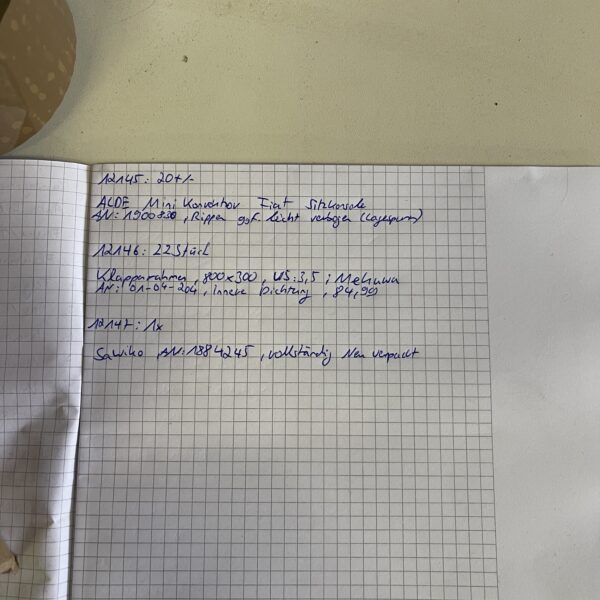 12145: 20+/-
ALDE Mini Konvektor Fiat Sitzkonsole
AN: 1900830, Rippen ggf. leicht verbogen (Lagespuren)
12146: 22 Stück
Klapprahmen, 800x300, WS:3,5; Mekuwa
AN: 01-04-204, Innere Dichtung, 84,99
12147: 1x
Sawiko, AN: 1884245, vollständig Neu verpackt